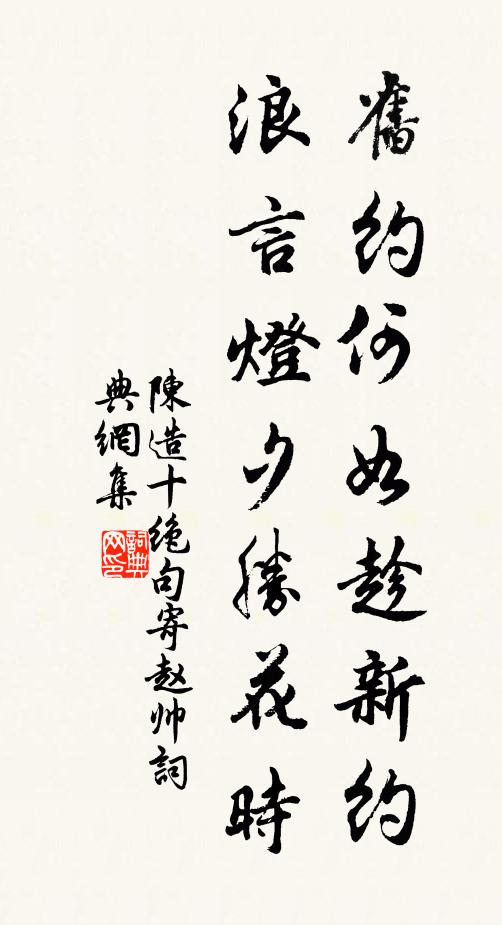 舊約何如趁新約
浪言燈夕勝花時
陳造十绝句寄赵帅詞
典網集
詞典网印